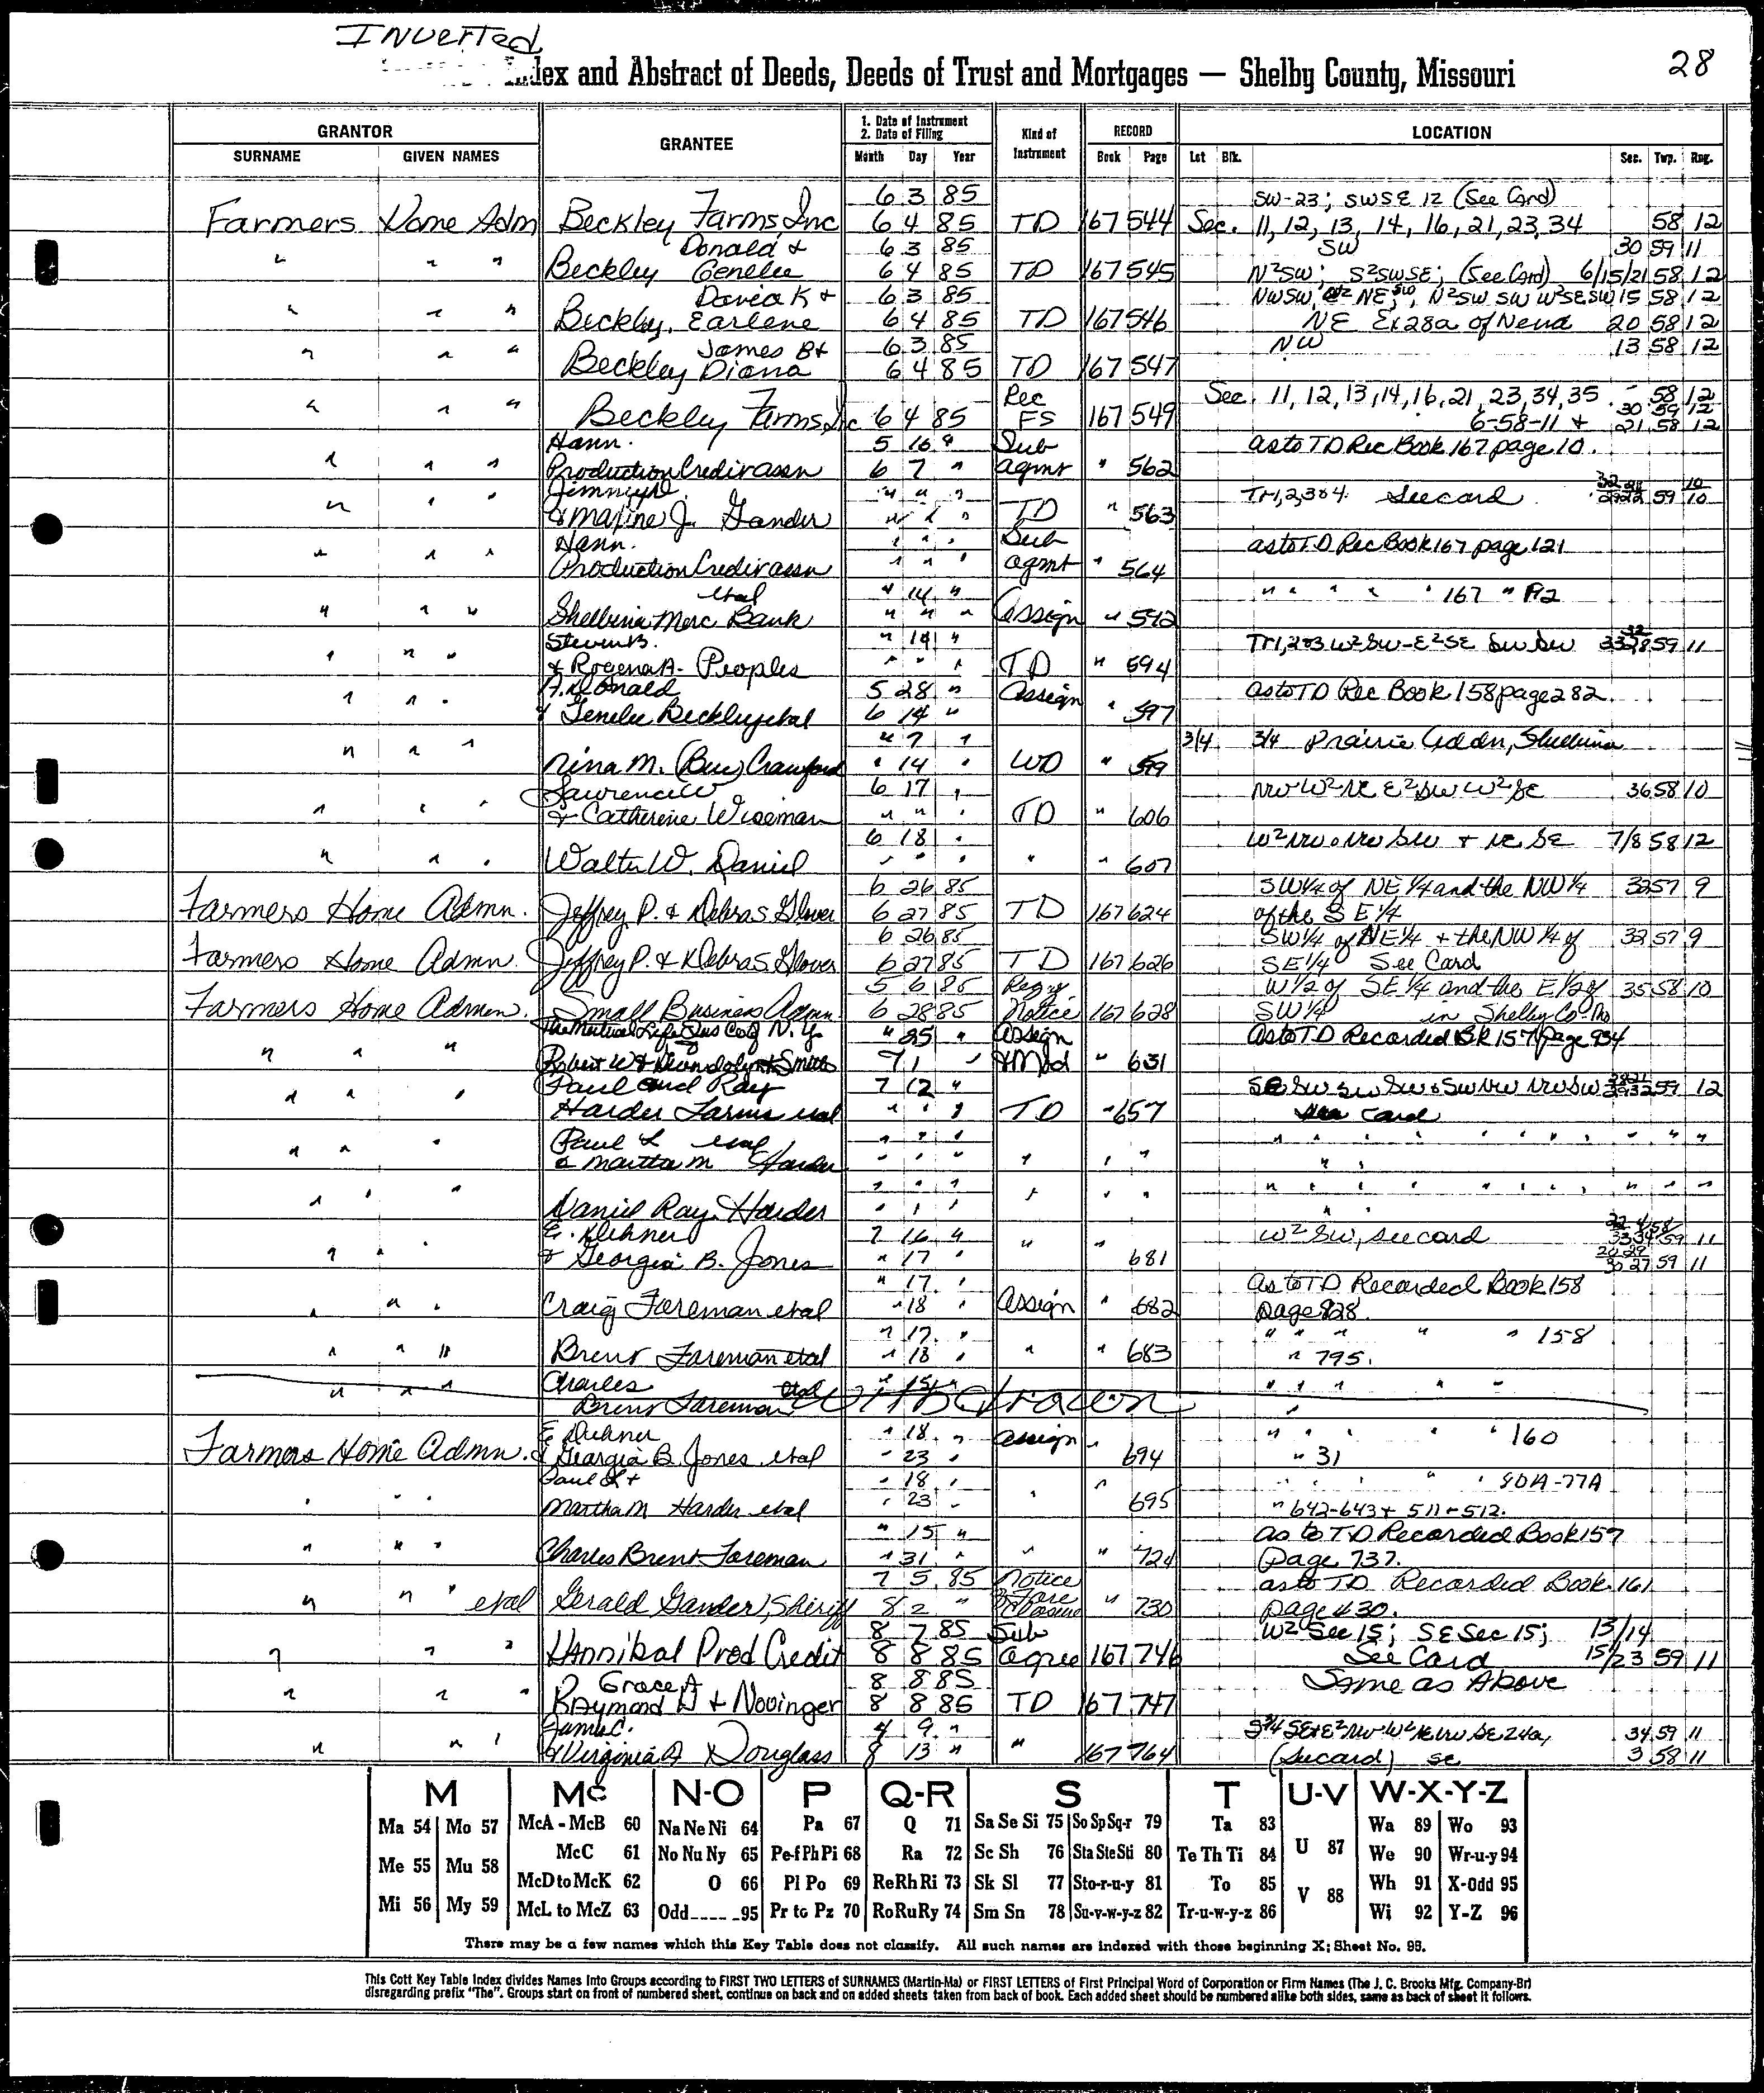 Inverted
Index and Abstract of Deeds, Deeds of Trust and Mortgages — Shelby County, Missouri
28
GRANTOR
GRANTEE
1. Date of Instrument
2. Date of Filing
Kind of Instrument
RECORD
LOCATION
SURNAME GIVEN NAMES Month Day Year Book Page Lot Blk. Sec. Twp. Rng.
6 3 85 SW-23; SWSE 12 (See Card)
Farmers Home Adm Beckley Farms, Inc 6 4 85 TD 167 544 Sec. 11, 12, 13, 14, 16, 21, 23, 34 58 12
Donald & 6 3 85 SW 30 59 11
" " " Beckley Genelee 6 4 85 TD 167 545 N²SW; S²SWSE; (See Card) 6/15/21 58 12
David K & 6 3 85 NWSW, NE SW, N²SW SW W²SE SW 15 58 12
" " " Beckley, Earlene 6 4 85 TD 167 546 NE Ex28a of Nend 20 58 12
James B & 6 3 85 NW 13 58 12
" " " Beckley Diana 6 4 85 TD 167 547
Rec Sec. 11, 12, 13, 14, 16, 21, 23, 34, 35 58 12
" " " Beckley Farms, Inc 6 4 85 FS 167 549 6-58-11 + 30 59 12
21 58 12
Hann. 5 16 " Sub as to TD Rec Book 167 page 10.
" " " Production Credit assn 6 7 " agmt " 562
Jimmy D. " " " Tr 1, 2, 3 & 4 See card 59 10
" " " & Maxine J. Gander " " " TD " 563
Hann. " " " Sub as to TD Rec Book 167 page 121
" " " Production Credit assn " " " agmt " 564
etal " 14 " " " " " " 167 "
" " " Shelbina Merc Bank " " " Assign " 592
Steven B. " 14 " Tr 1, 2 & 3 W² SW - E² SE SW SW 59 11
" " " & Rogena A. Peoples " " " TD " 594
A. Donald 5 28 " Assign as to TD Rec Book 158 page 282.
" " " & Genelee Beckley etal 6 14 " " 597
" 7 " 3/4 3/4 Prairie Addn, Shelbina
" " " Nina M. (Bue) Crawford " 14 " WD " 599
Lawrence W 6 17 " NW W² NE E² SW W² SE 36 58 10
" " " & Catherine Wiseman " " " TD " 606
6 18 " W² NW & NW SW + NE SE 7/8 58 12
" " " Walter W. Daniel " " " " " 607
6 26 85 SW1/4 of NE 1/4 and the NW 1/4 32 57 9
Farmers Home Admn. Jeffrey P. & Debra S. Glover 6 27 85 TD 167 624 of the SE 1/4
6 26 85 SW1/4 of NE1/4 + the NW 1/4 of 32 57 9
Farmers Home Admn. Jeffrey P. & Debra S. Glover 6 27 85 TD 167 626 SE 1/4 See Card
5 6 85 W 1/2 of SE 1/4 and the E 1/2 of 35 58 10
Farmers Home Admn. Small Business Admn 6 28 85 Notice 167 628 SW 1/4 in Shelby Co. Mo
The Mutual Life Ins Co of N. Y. " 25 " Assign as to TD Recorded BK 157 page 934
" " " Robert W & Gwendolyn Smith 7 1 " & Mod " 631
Paul and Ray 7 12 " SE SW SW SW & SW NW NW SW 59 12
" " " Harder Farms etal " " " TD " 657 See Card
Paul L etal " " " " " " " " " " " " "
" " " & Martha M Harder " " " " " " " "
" " " " " " " " " " " " "
" " " Daniel Ray Harder " " " " " " "
E. Dehner 7 16 " W² SW, see card
" " " & Georgia B. Jones " 17 " " " 681 59 11
" 17 " as to TD Recorded Book 158
" " " Craig Foreman etal " 18 " Assign " 682 page 828.
" 17 " " " " " " 158
" " " Brent Foreman etal " 18 " " " 683 " 795.
Charles etal " 15 " " " " " "
" " " Brent Foreman Withdrawn
E. Dehner " 18 " Assign " " " " " 160
Farmers Home Admn. & Georgia B. Jones etal " 23 " 694 " 31
Paul L + " 18 " " " " " "
" " " Martha M Harder etal " 23 " " 695 " 642-643 + 511 + 512.
" 15 " as to TD Recorded Book 157
" " " Charles Brent Foreman " 31 " " " 724 page 737.
7 5 85 Notice as to TD Recorded Book 161
" " " etal Gerald Gander, Sheriff 8 2 " Foreclosure " 730 page 430.
8 7 85 Sub W² Sec 15; SE Sec 15; 13/14
" " " Hannibal Prod Credit 8 8 85 agree 167 746 See Card 15/23 59 11
Grace A 8 8 85 Same as Above
" " " Raymond D & Novinger 8 8 85 TD 167 747
James C. 4 9 " 34 59 11
" " " & Virginia A Douglass 8 13 " " 167 764 (see card) SE 3 58 11
M Mc N-O P Q-R S T U-V W-X-Y-Z
Ma 54 Mo 57 McA - McB 60 Na Ne Ni 64 Pa 67 Q 71 Sa Se Si 75 So Sp Sq-r 79 Ta 83 U 87 Wa 89 Wo 93
Me 55 Mu 58 McC 61 No Nu Ny 65 Pe-f Ph Pi 68 Ra 72 Sc Sh 76 Sta Ste Sti 80 Te Th Ti 84 We 90 Wr-u-y 94
McD to McK 62 O 66 Pl Po 69 Re Rh Ri 73 Sk Sl 77 Sto-r-u-y 81 To 85 V 88 Wh 91 X-Odd 95
Mi 56 My 59 McL to McZ 63 Odd 95 Pr to Pz 70 Ro Ru Ry 74 Sm Sn 78 Su-v-w-y-z 82 Tr-u-w-y-z 86 Wi 92 Y-Z 96
There may be a few names which this Key Table does not classify. All such names are indexed with those beginning X; Sheet No. 95.
This Cott Key Table Index divides Names Into Groups according to FIRST TWO LETTERS of SURNAMES (Martin-Ma) or FIRST LETTERS of First Principal Word of Corporation or Firm Names (The J. C. Brooks Mfg. Company-Br)
disregarding prefix "The". Groups start on front of numbered sheet, continue on back and on added sheets taken from back of book. Each added sheet should be numbered alike both sides, same as back of sheet it follows.